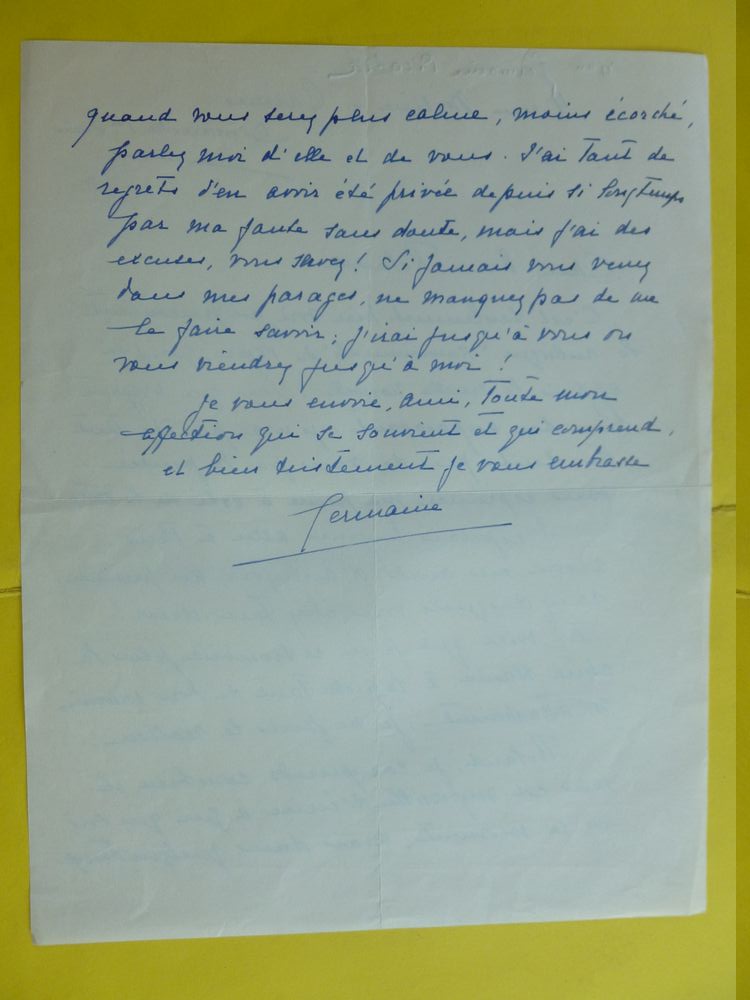 quand vous serez plus calme, moins écorché,
parlez moi d'elle et de vous. J'ai tant de
regrets d'en avoir été privée depuis si longtemps
par ma faute sans doute, mais j'ai des
excuses, vous savez! Si jamais vous venez
dans mes parages, ne manquez pas de me
le faire savoir; j'irai jusqu'à vous ou
vous viendrez jusqu'à moi!
Je vous envoie, ami, toute mon
affection qui se souvient et qui comprend,
et bien tristement je vous embrasse
Germaine